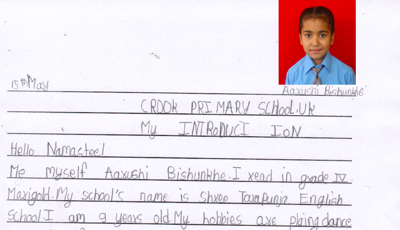 Aaxushi Bishunkhe
15th May
CROOK PRIMARY SCHOOL.UK
My INTRODUCT ION
Hello Namaste!
Me myself Aaxushi Bishunkhe.I read in grade IV.
Marigold.My school's name is Shree Tarapunja English
School.I am 9 years old.My hobbies are plaing dance